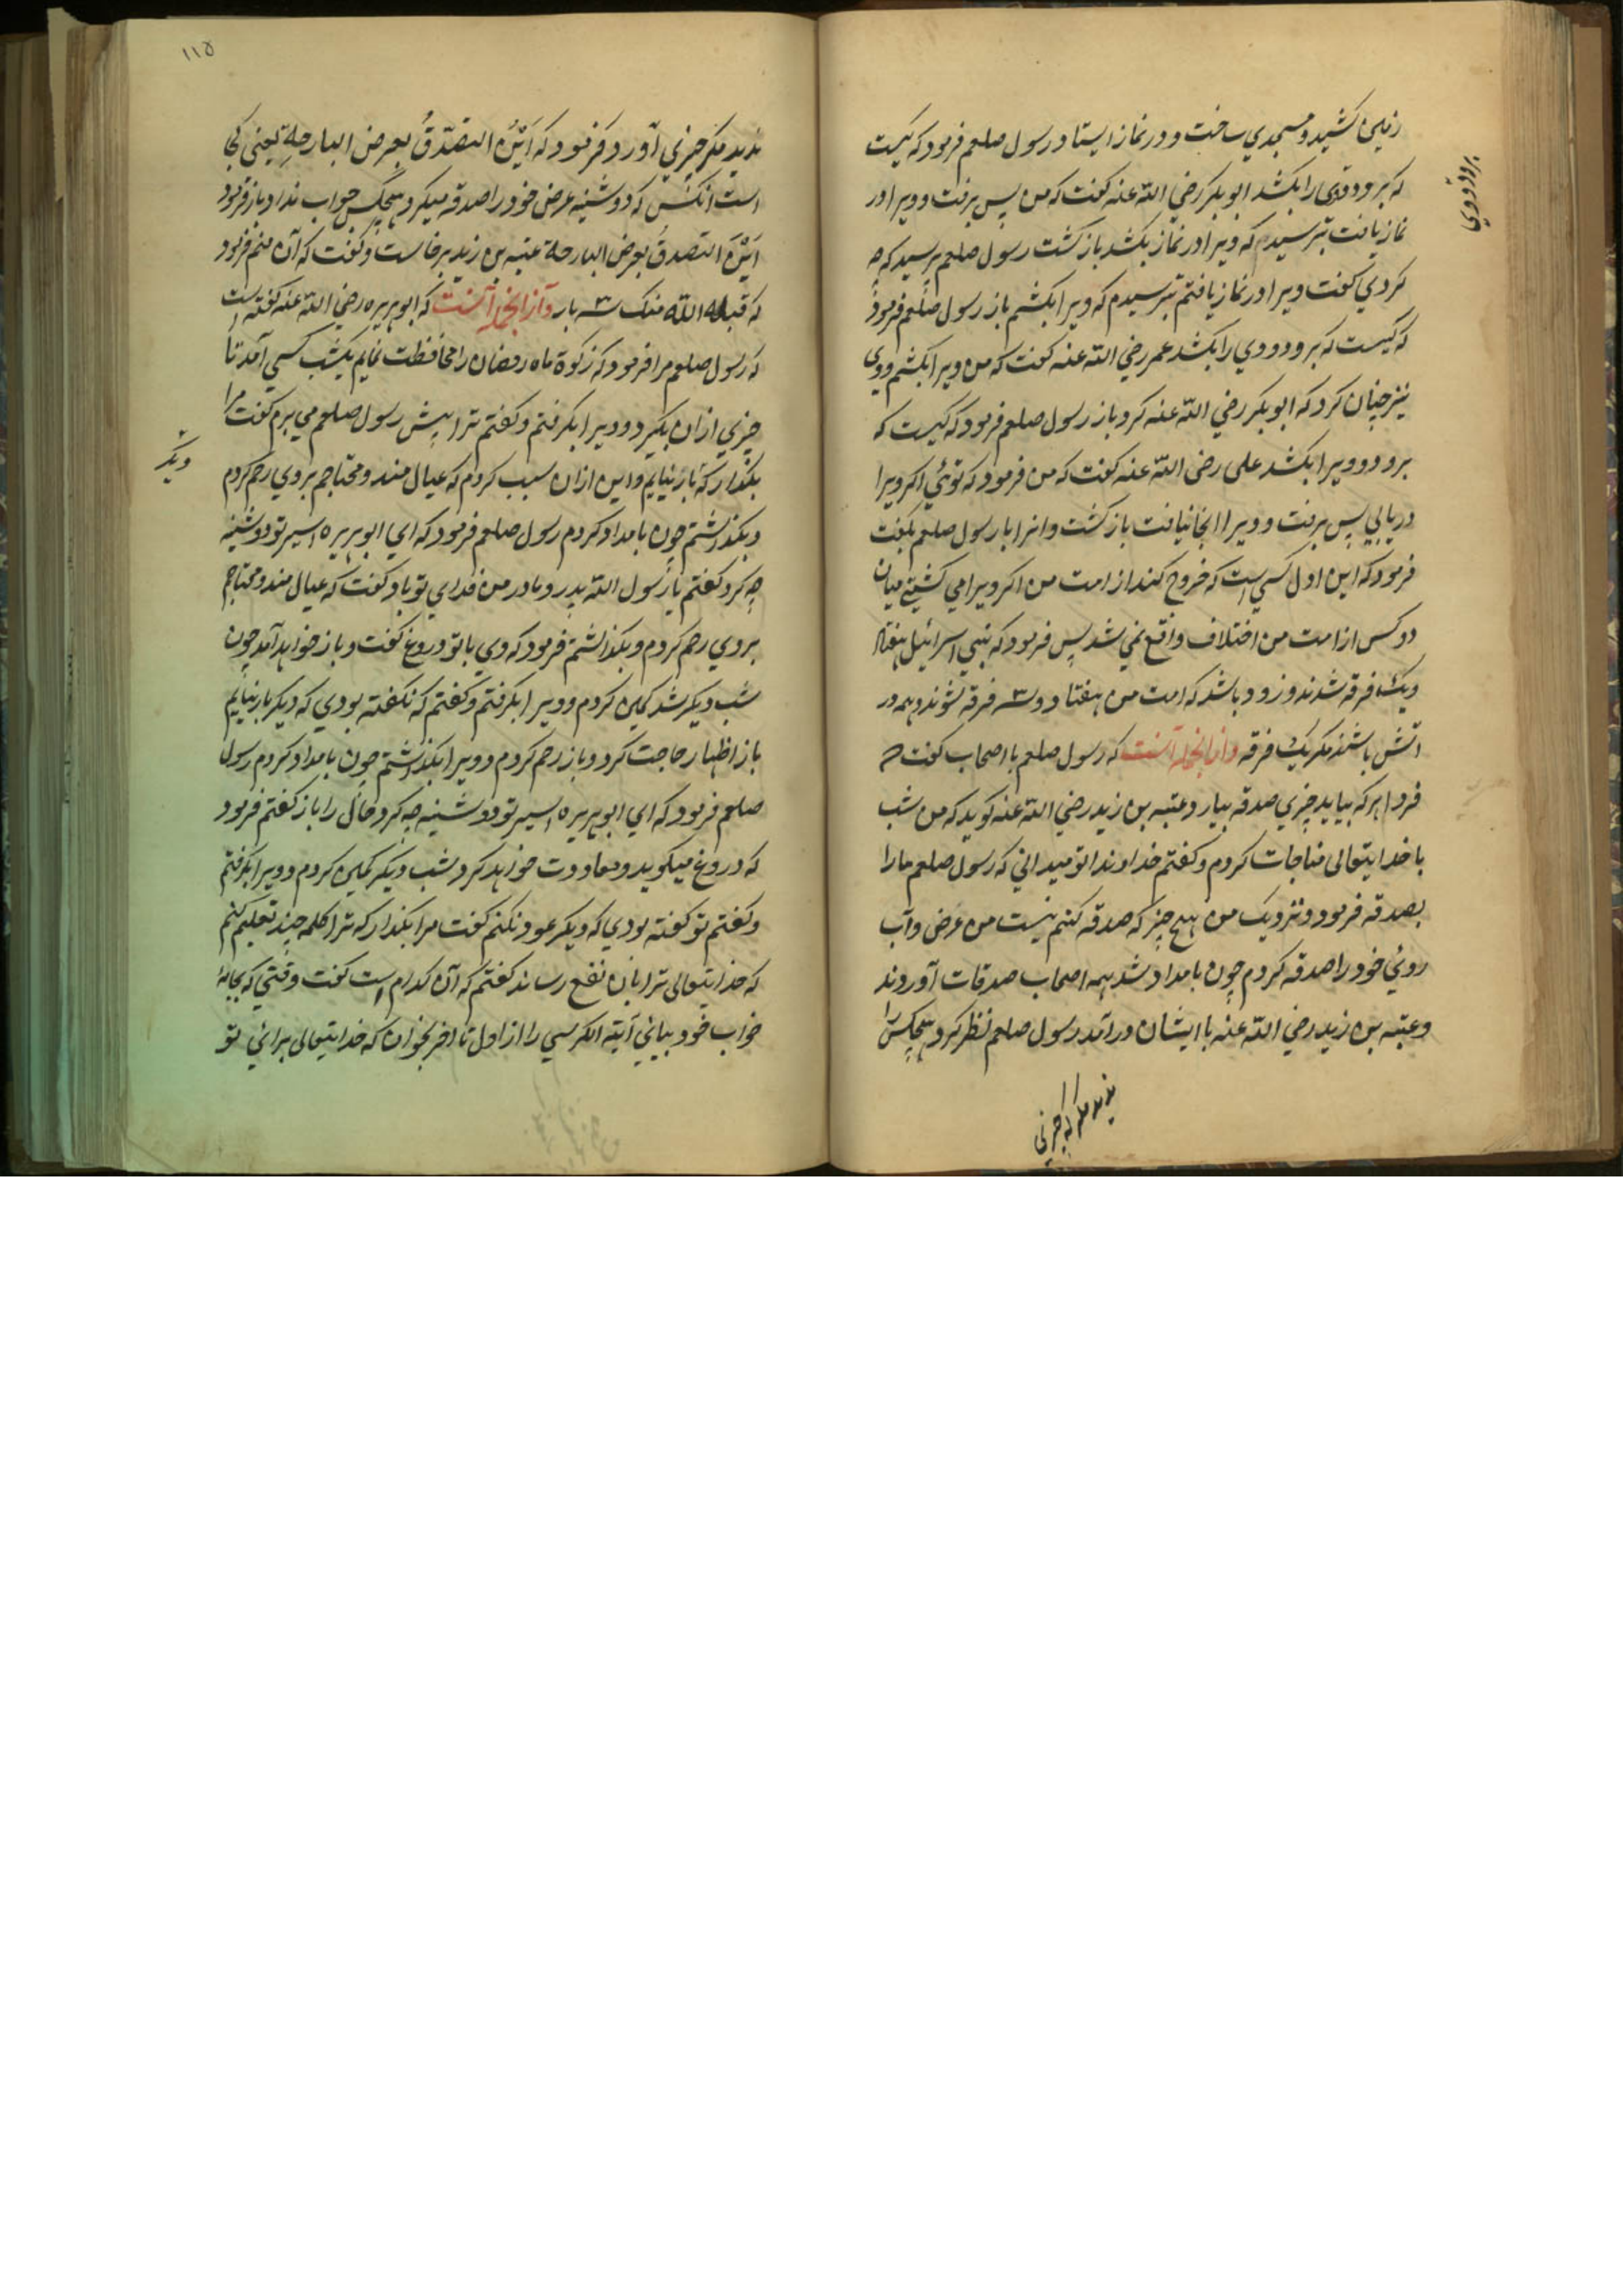 زمین کشید و مسجدی ساخت و در نماز ایستاد رسول صلعم فرمود که کیست
که برود و وی را بکشد ابو بکر رضی الله عنه گفت که من پس برفت و ویرا در
نماز یافت بترسید که ویرا در نماز بکشد باز گشت رسول صلعم پرسید که چه
کردی گفت ویرا در نماز یافتم بترسیدم که ویرا بکشم باز رسول صلعم فرمود
که کیست که برود و وی را بکشد عمر رضی الله عنه گفت که من ویرا بکشم و وی
نیز چنان کرد که ابو بکر رضی الله عنه کرد باز رسول صلعم فرمود که کیست که
برود و ویرا بکشد علی رضی الله عنه گفت که من فرمود که توئی اگر ویرا
دریابی پس برفت و ویرا انجا نیافت باز گشت و انرا با رسول صلعم بگفت
فرمود که این اول کسی است که خروج کند از امت من اگر ویرا می کشتی میان
دو کس از امت من اختلاف واقع نمی شد پس فرمود که بنی اسرائیل هفتاد
و یک فرقه شدند و زود باشد که امت من هفتاد و سه فرقه شوند و همه در
اتش باشند مگر یک فرقه و از انجمله آنست که رسول صلعم با اصحاب گفت که
فردا هر که بیاید چیزی صدقه بیارد عتبه بن زید رضی الله عنه گوید که من شب
با خدایتعالی مناجات کردم و گفتم خداوندا تو میدانی که رسول صلعم ما را
بصدقه فرمود و نزدیک من هیچ چیز که صدقه کنم نیست من عرض و آب
روئی خود را صدقه کردم چون بامداد شد همه اصحاب صدقات آوردند
و عتبه بن زید رضی الله عنه با ایشان در آمد رسول صلعم نظر کرد هیچکس را
برود و وی
ندید مگر که چیزی
۱۱۵
ندید مگر چیزی آورد فرمود که این المتصدق بعرض البارحة یعنی کجا
است انکس که دوشینه عرض خود را صدقه میکرد هیچکس جواب نداد باز فرمود
این المتصدق بعرض البارحة عتبه بن زید برخاست و گفت که آن منم فرمود
که قبله الله منک سه بار و از انجمله آنست که ابو هریره رضی الله عنه گفته است
که رسول صلعم مرا فرمود که زکوة ماه رمضان را محافظت نمایم یکشب کسی آمد تا
چیزی از ان بگیرد و ویرا بگرفتم و گفتم ترا پیش رسول صلعم می برم گفت مرا
بگذار که باز نیایم و این از ان سبب کردم که عیال مند و محتاجم بر وی رحم کردم
و بگذاشتم چون بامداد کردم رسول صلعم فرمود که ای ابو هریره اسیر تو دوشینه
چه کرد گفتم یا رسول الله پدر و مادر من فدای تو باد گفت که عیال مند و محتاجم
بر وی رحم کردم و بگذاشتم فرمود که وی با تو دروغ گفت و باز خواهد آمد چون
شب دیگر شد کمین کردم و ویرا بگرفتم و گفتم که نگفته بودی که دیگر باز نیایم
باز اظهار حاجت کرد و باز رحم کردم و ویرا بگذاشتم چون بامداد کردم رسول
صلعم فرمود که ای ابو هریره اسیر تو دوشینه چه کرد حال را باز گفتم فرمود
که دروغ میگوید و معاودت خواهد کرد شب دیگر کمین کردم و ویرا بگرفتم
و گفتم تو گفته بودی که دیگر عود نکنم گفت مرا بگذار که ترا کلمه چند تعلیم کنم
که خدایتعالی ترا بان نفع رساند گفتم که آن کدام است گفت وقتی که بجامه
خواب خود بیائی آیة الکرسی را از اول تا اخر بخوان که خدایتعالی برائی تو
دیگر